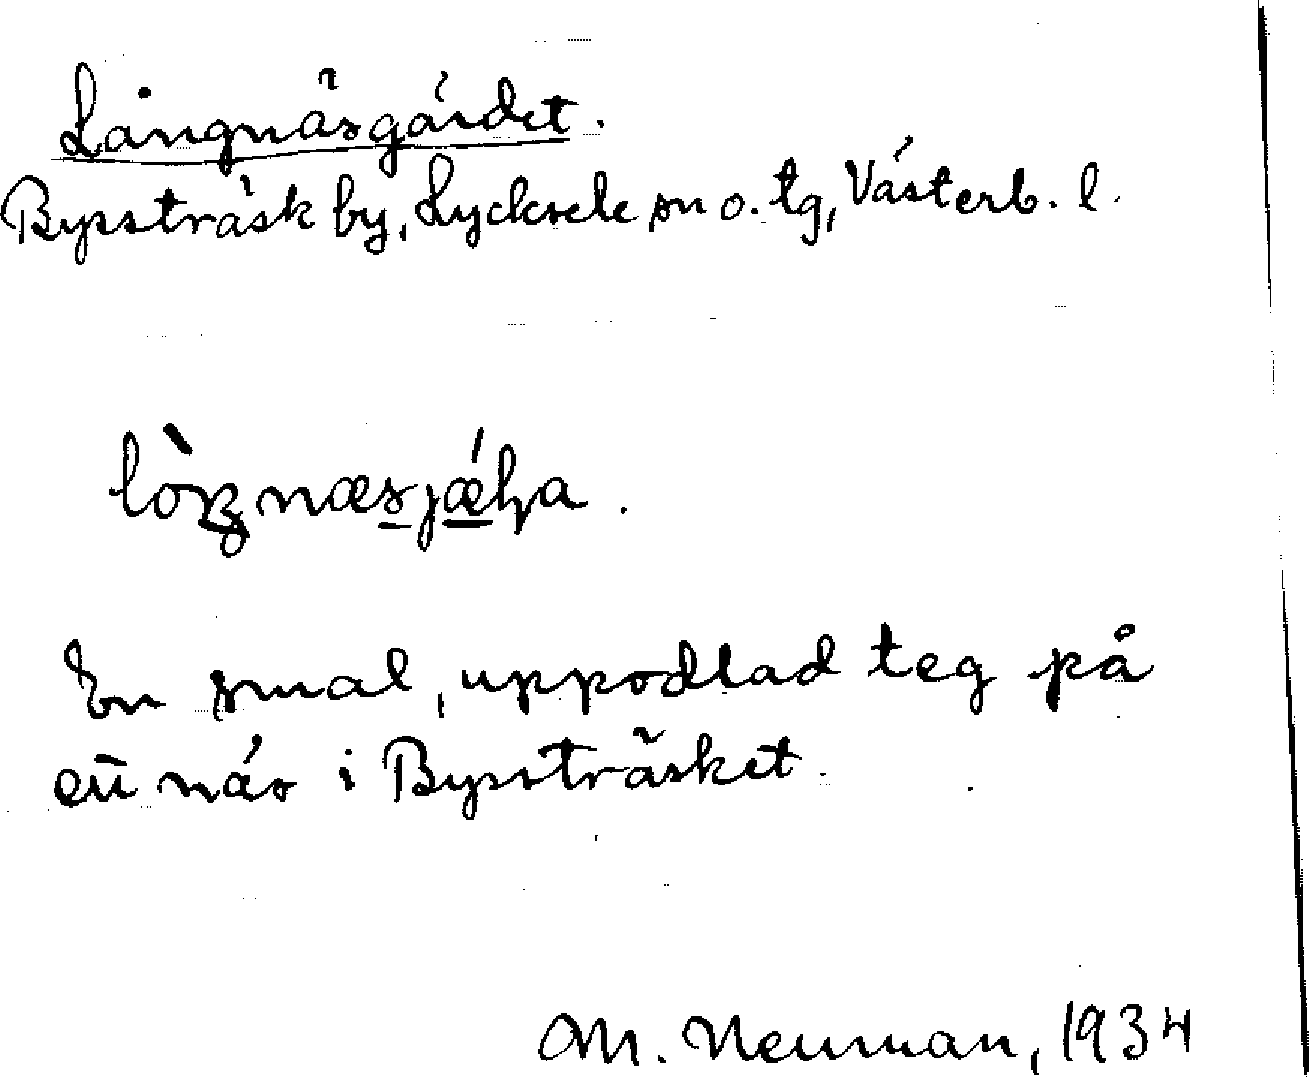 Långnäsgärdet.
Bysträsk by, Lycksele sn o. tg, Västerb. l.
En smal, uppodlad teg på
ett näs i Bysträsket.
M. Neuman, 1934